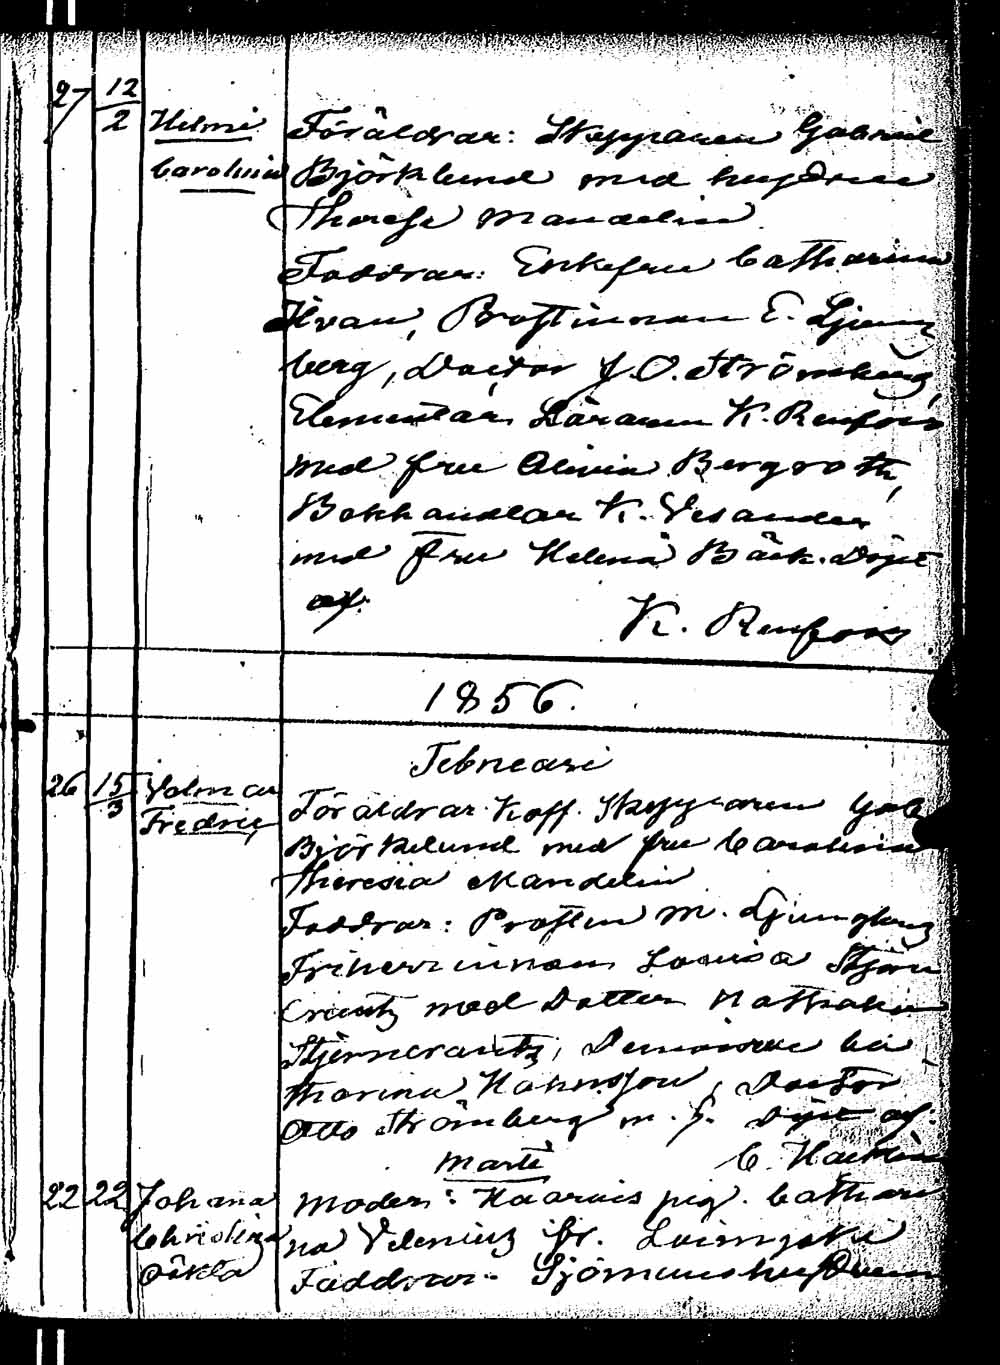 27 12/2 Helmi Föräldrar: Skepparen Gabriel
Carolina Björklund med hustrun
Therese Mandelin
Faddrar: Enkefru Catharina
Prostinnan E. Ljung
berg, Doctor J. O. Strömberg,
Elementar Läraren K. Renfors
med fru Olivia Bergroth,
Bokhandlar K. Vesander
med Fru Helena Bäck. Döpt
af.
K. Renfors
1856.
Februari
26 15/3 Fredric Föräldrar Koff. Skepparen Gab
Björklund med fru Carolina
Theresia Mandelin
Faddrar: Prosten M. Ljungberg
Friherrinnan Lovisa Stjern
crantz med Dotter Nathalia
Stjerncrantz, Demoiselle Ca
tharina, Doctor
Otto Strömberg m. f. Döpt af.
Marti C.
22 22 Johana Moder: pig. Cathari
Christina na
Faddrar: Sjömans hustrun